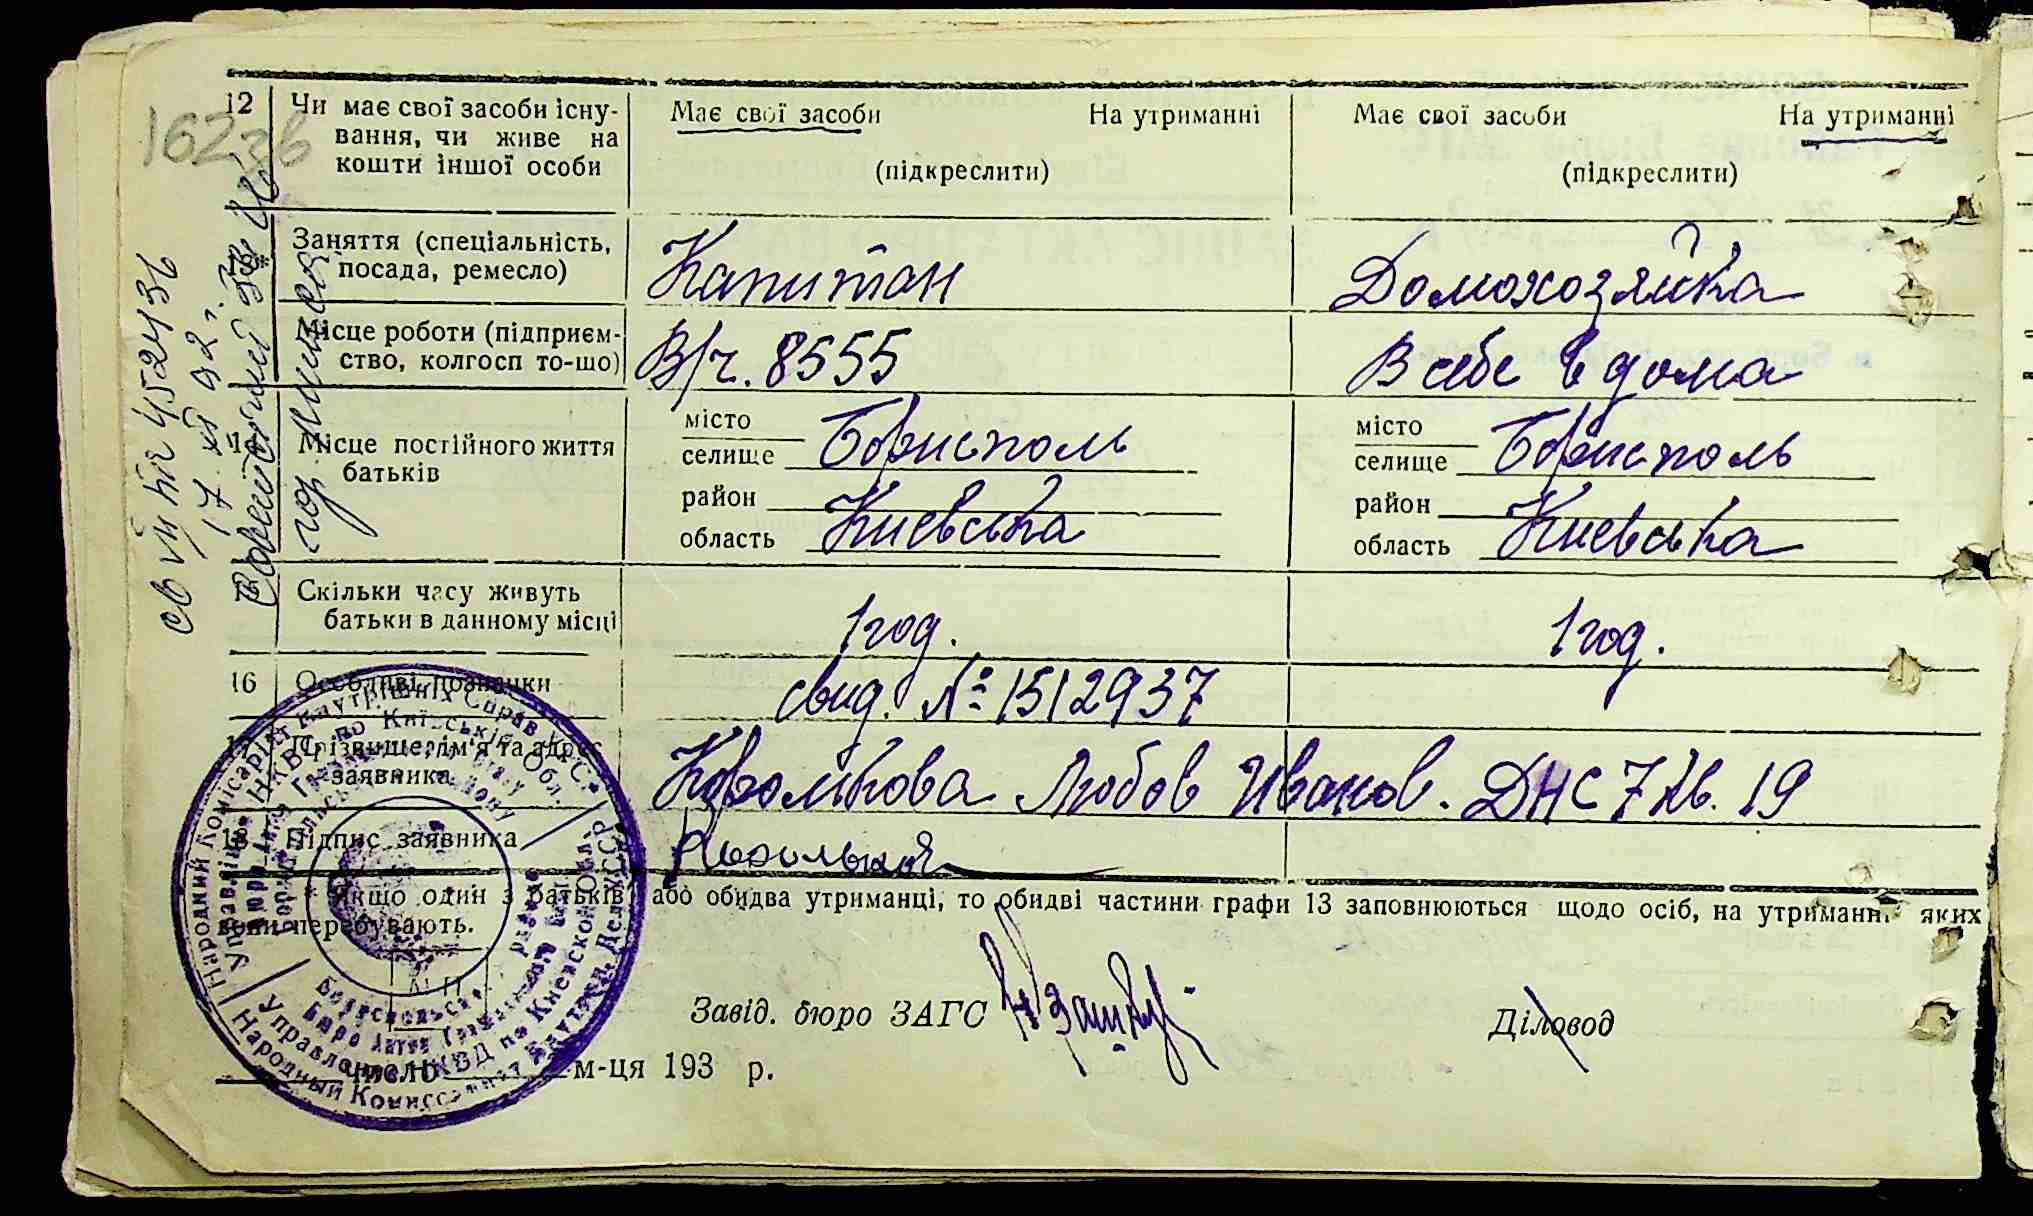 12 Чи має свої засоби існу-
вання, чи живе на
кошти іншої особи
Має свої засоби На утриманні
(підкреслити)
Має свої засоби На утриманні
(підкреслити)
13* Заняття (спеціальність,
посада, ремесло)
Капитан
Домохозяйка
Місце роботи (підприєм-
ство, колгосп то-що)
В/ч. 8555
В себе в дома
14 Місце постійного життя
батьків
місто
селище Борисполь
район
область Киевська
місто
селище Борисполь
район
область Киевська
15 Скільки часу живуть
батьки в данному місці
1 год.
1 год.
16 Особливі познанки
свид. № 1512937
17 Прізвище, ім'я та адрес
заявника
Любов Иванов. ДНС 7 кв. 19
18 Підпис заявника
* Якщо один з батьків, або обидва утриманці, то обидві частини графи 13 заповнюються щодо осіб, на утриманні яких
вони перебувають.
Завід. бюро ЗАГС
Діловод
число м-ця 193 р.
Народний Комісаріят Внутрішніх Справ УРСР
Управління НКВС по Київській Обл.
Управление НКВД по Киевской Обл.
Народный Комиссариат Внутрен. Дел УССР
162
452436
17 XII 92 г.